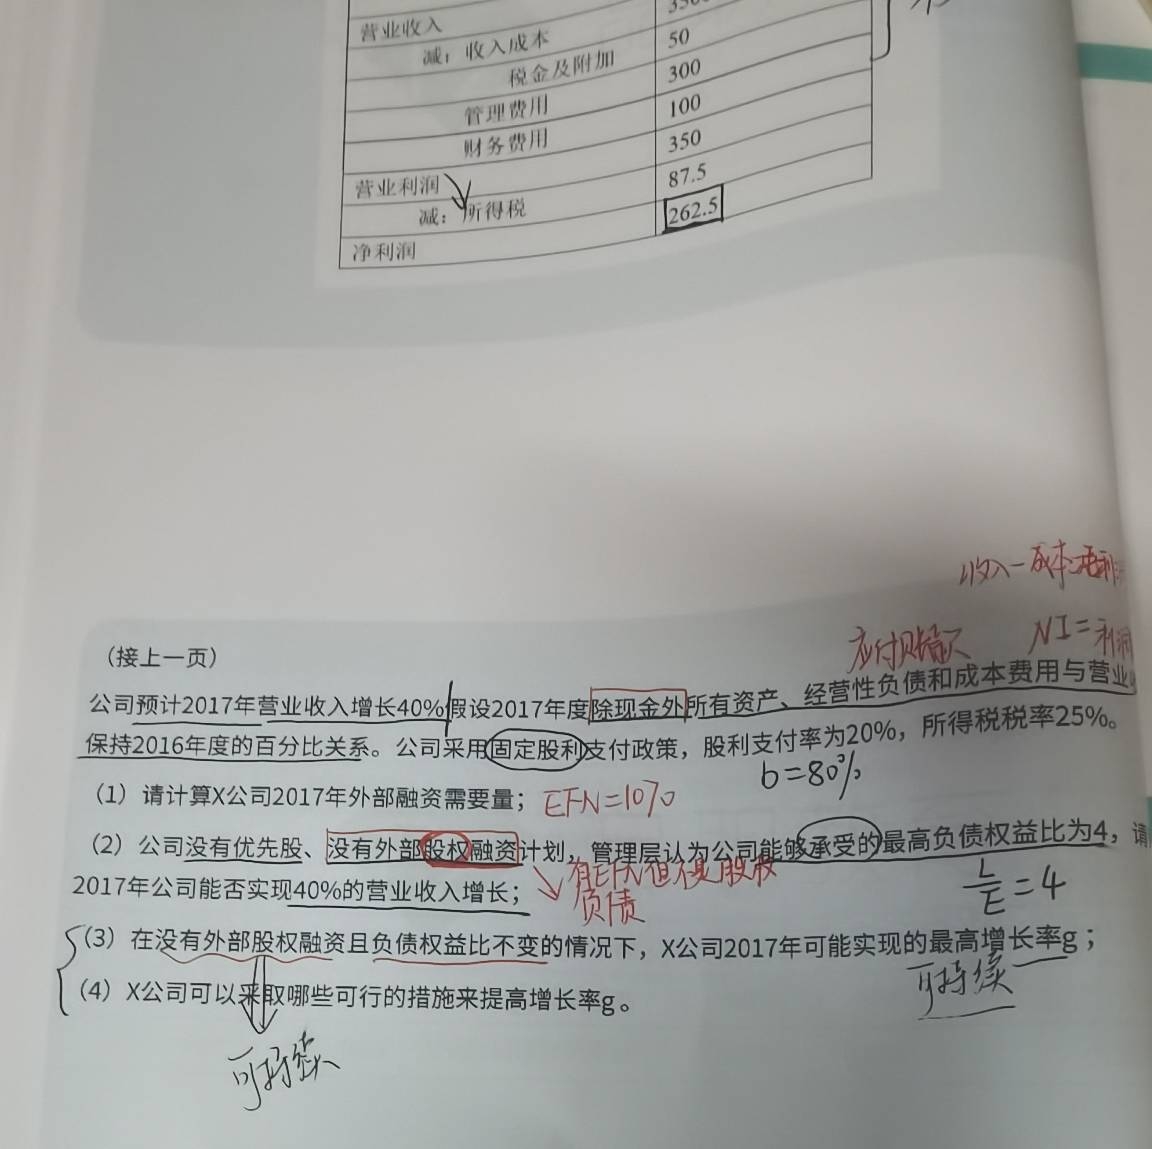 营业收入
减：收入成本 50
税金及附加 300
管理费用 100
财务费用 350
营业利润 87.5
减：所得税 262.5
净利润
收入-成本=毛利
应付账款 NI=利润
（接上一页）
公司预计2017年营业收入增长40%假设2017年度除现金外所有资产、经营性负债和成本费用与营业
保持2016年度的百分比关系。公司采用固定股利支付政策，股利支付率为20%，所得税税率25%。
b=80%
（1）请计算X公司2017年外部融资需要量；
（2）公司没有优先股、没有外部股权融资计划，管理层认为公司能够承受的最高负债权益比为4，请
有EFN但不是股权
2017年公司能否实现40%的营业收入增长；
负债
L/E=4
（3）在没有外部股权融资且负债权益比不变的情况下，X公司2017年可能实现的最高增长率g；
可持续
（4）X公司可以采取哪些可行的措施来提高增长率g。
可持续